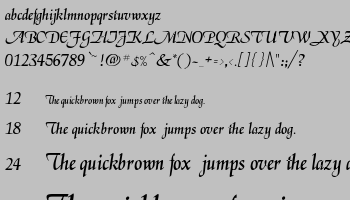 abcdefghijklmnopqrstuvwxyz
ABCDEFGHIJKLMNOPQRSTUVWXYZ
0123456789~!@#$%^&*()-_+=>,<.[]{}/\":;/?
12 The quickbrown fox jumps over the lazy dog.
18 The quickbrown fox jumps over the lazy dog.
24 The quickbrown fox jumps over the lazy